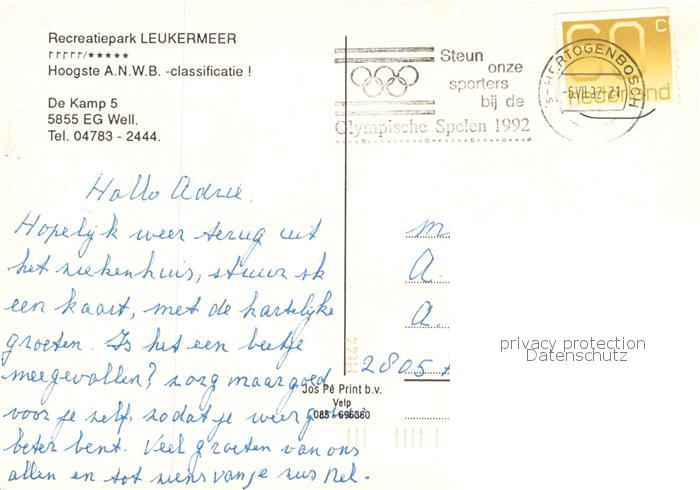 Recreatiepark LEUKERMEER
Hoogste A.N.W.B. -classificatie !
De Kamp 5
5855 EG Well.
Tel. 04783 - 2444.
Steun
onze
sporters
bij de
Olympische Spelen 1992
'S-HERTOGENBOSCH
-6.VII.92-21
60 c
nederland
Hallo Adrie.
Hopelijk weer terug uit
het ziekenhuis, stuur ik
een kaart, met de hartelijke
groeten. Is het een beetje
meegevallen? zorg maar goed
voor je zelf, zodat je weer
beter bent. Veel groeten van ons
allen en tot ziens van je zus Nel.
m
A.
A.
2805
privacy protection
Datenschutz
Jos Pé Print b.v.
Velp
085 - 696360